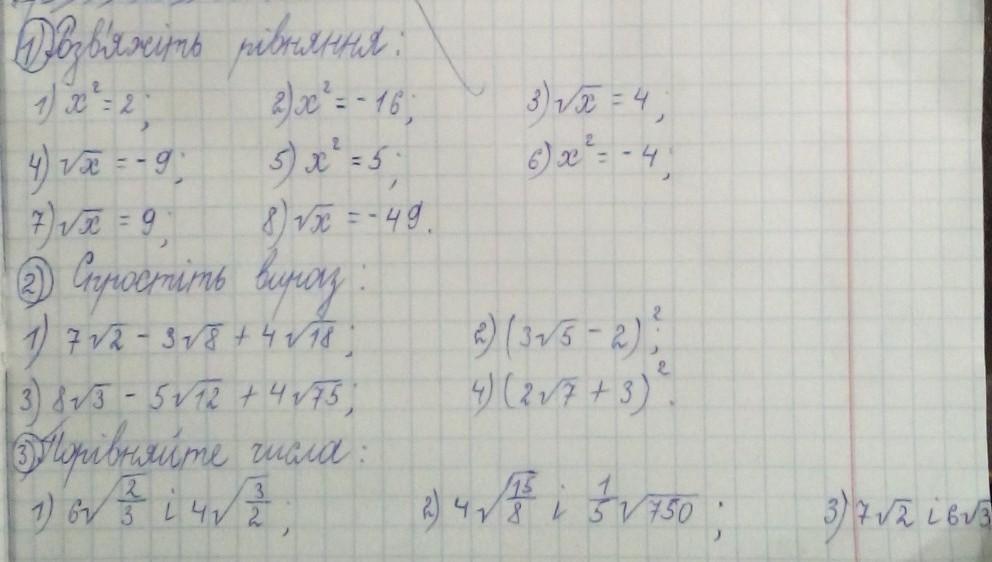 1) Розв'яжіть рівняння:
1) x² = 2; 2) x² = -16; 3) √x = 4;
4) √x = -9; 5) x² = 5; 6) x² = -4;
7) √x = 9; 8) √x = -49.
2) Спростіть вираз:
1) 7√2 - 3√8 + 4√18; 2) (3√5 - 2)²;
3) 8√3 - 5√12 + 4√75; 4) (2√7 + 3)².
3) Порівняйте числа:
1) 6√(2/3) і 4√(3/2); 2) 4√(15/8) і 1/5√750; 3) 7√2 і 6√3